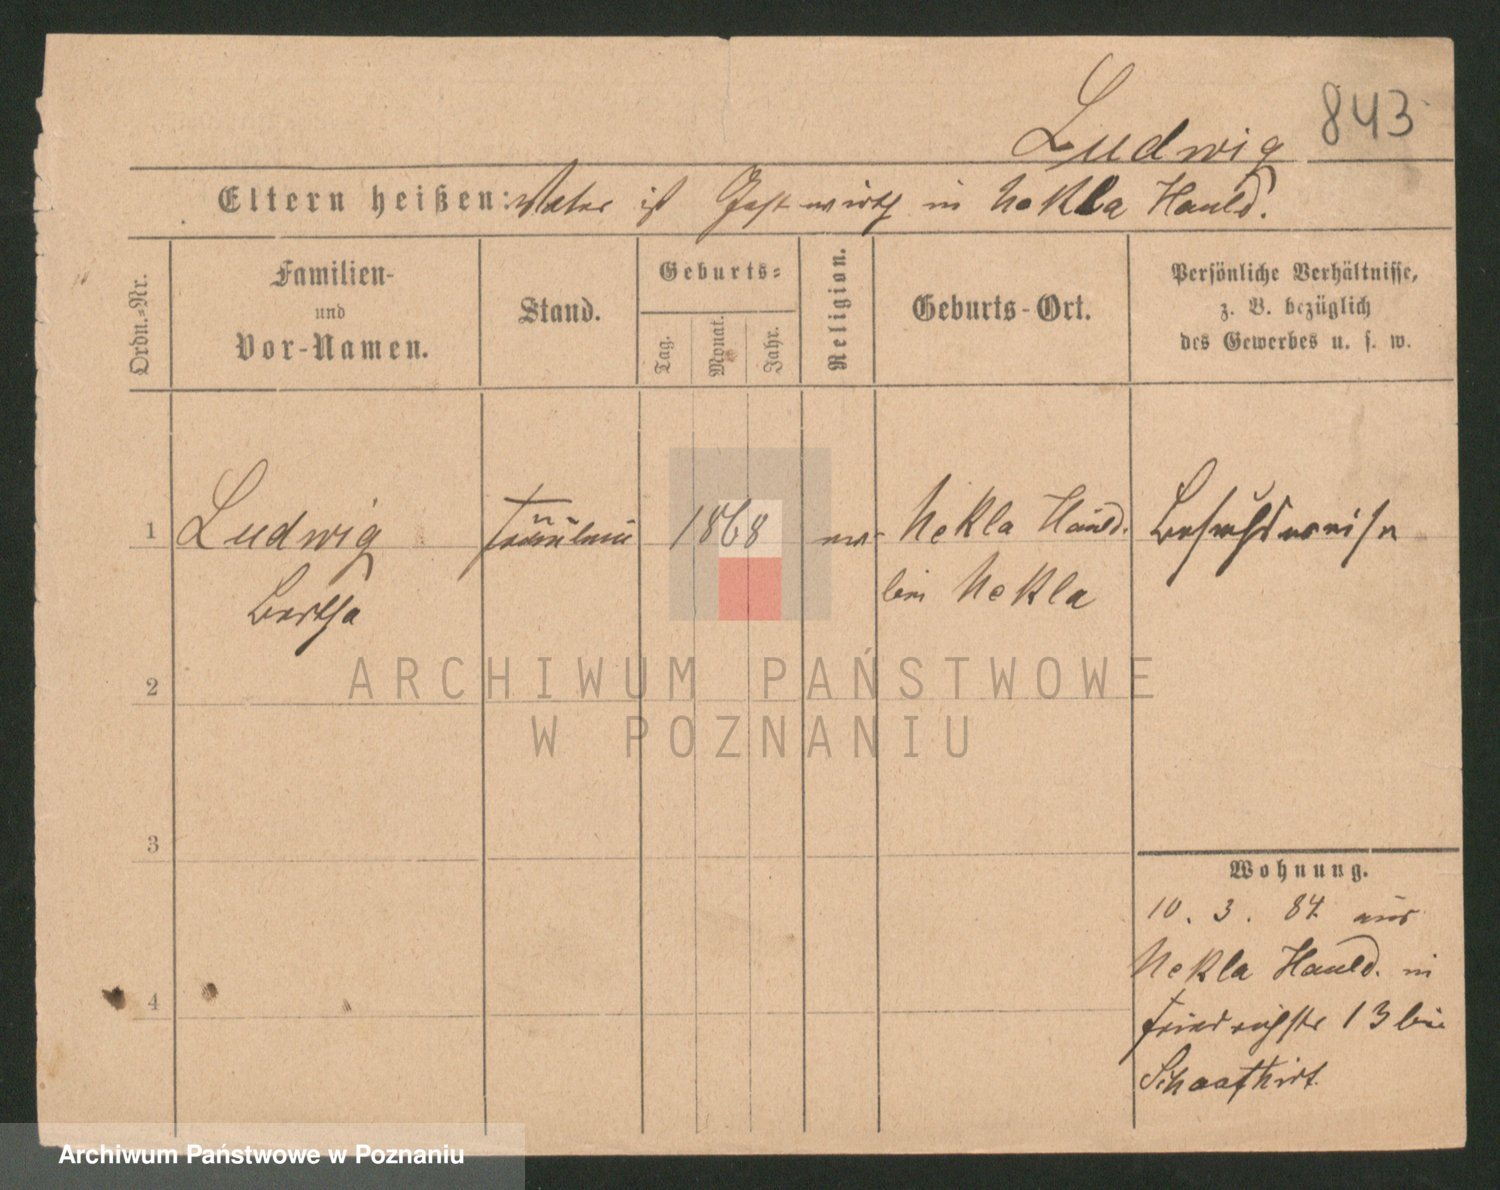 843
Ludwig
Eltern heißen: Vater ist Gastwirth in Nekla Hauld.
Ordn.=Nr.
Familien-
und
Vor-Namen.
Stand.
Geburts=
Tag.
Monat.
Jahr.
Religion.
Geburts-Ort.
Persönliche Verhältnisse,
z. B. bezüglich
des Gewerbes u. s. w.
1 Ludwig Fräulein 1868 ev. Nekla Hauld. besuchsweise
Bertha bei Nekla
2
3
4
Wohnung.
10. 3. 84. aus
Nekla Hauld. in
Friedrichstr 13 bei
ARCHIWUM PAŃSTWOWE
W POZNANIU
Archiwum Państwowe w Poznaniu